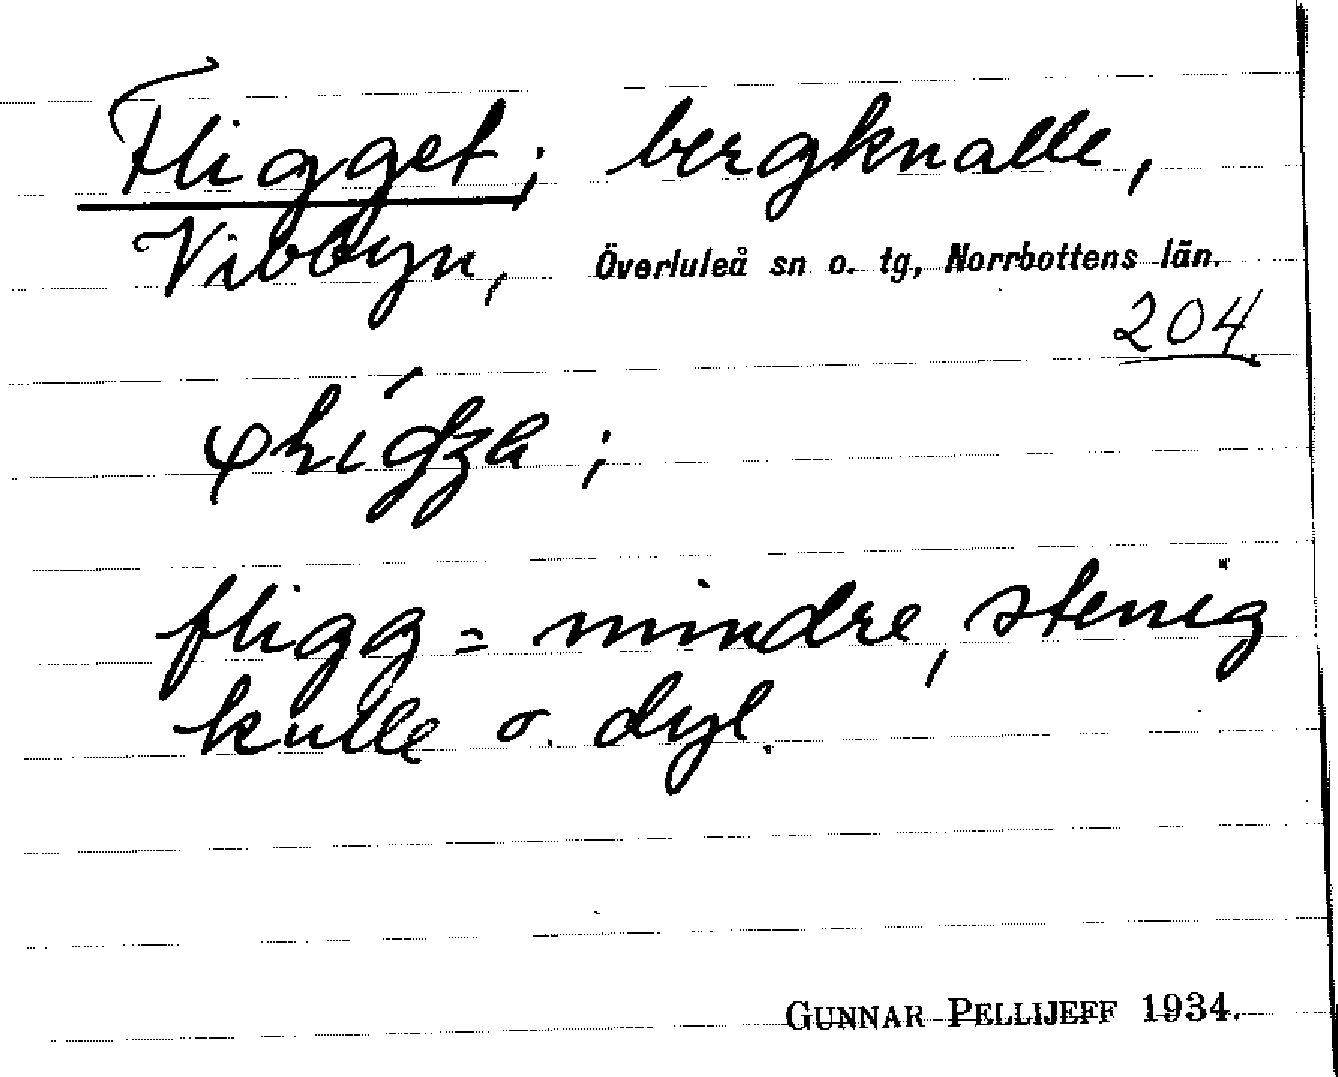 Fligget; bergknalle,
Vibbyn, Överluleå sn o. tg, Norrbottens län.
204
fligg = mindre, stenig
kulle o. dyl.
GUNNAR PELLIJEFF 1934.